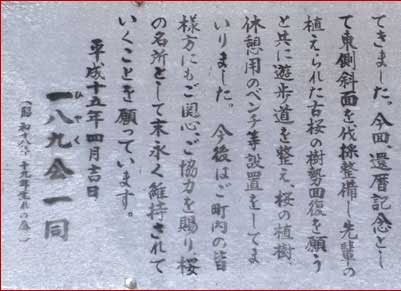 てきました。今回、還暦記念とし
て東側斜面を伐採整備し先輩の
植えられた古桜の樹勢回復を願う
と共に遊歩道を整え、桜の植樹
休憩用のベンチ等設置をしてま
いりました。 今後はご町内の皆
様方にもご関心、ご協力を賜り桜
の名所として末永く維持されて
いくことを願っています。
平成十五年四月吉日
一八九会一同
ひやく
(昭和十八、十九年生れの会)